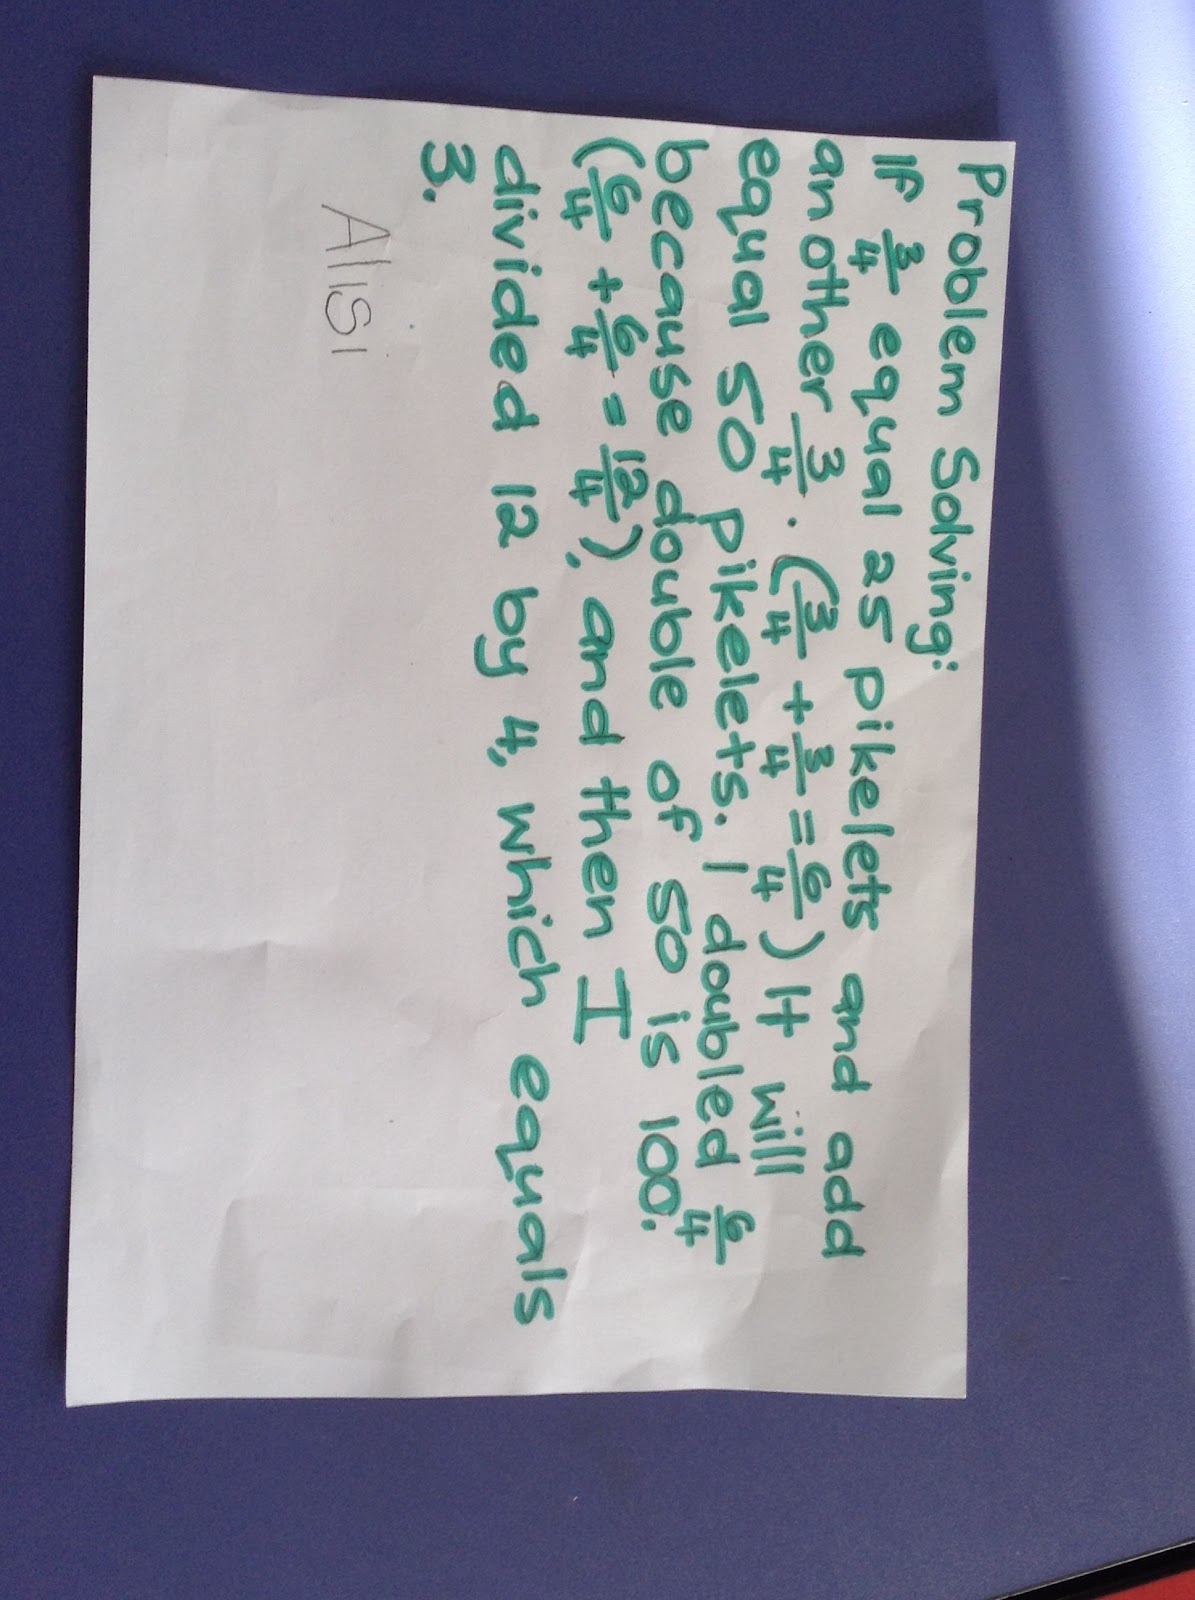 Problem Solving:
If 3/4 equal 25 pikelets and add
another 3/4. (3/4 + 3/4 = 6/4) It will
equal 50 pikelets. I doubled 6/4
because double of 50 is 100.
(6/4 + 6/4 = 12/4), and then I
divided 12 by 4, which equals
3.
Alisi